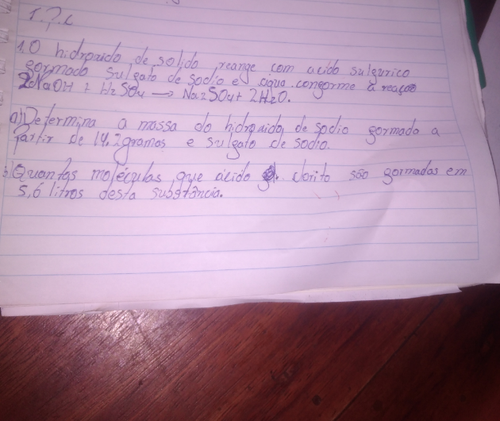 1.?.c
1.O hidroxido de solido reange com acido sulgurico
gormado sulgato de sodio e agua congorme a reaçao
2NaOH + H2SO4 → Na2SO4 + 2H2O.
a) Determina a massa do hidroxido, de sodio gormada a
partir de 14,2gramos e sulgato de sodio.
b) Quantas moléculas que acido são gormadas em
5,6 litros desta substância.